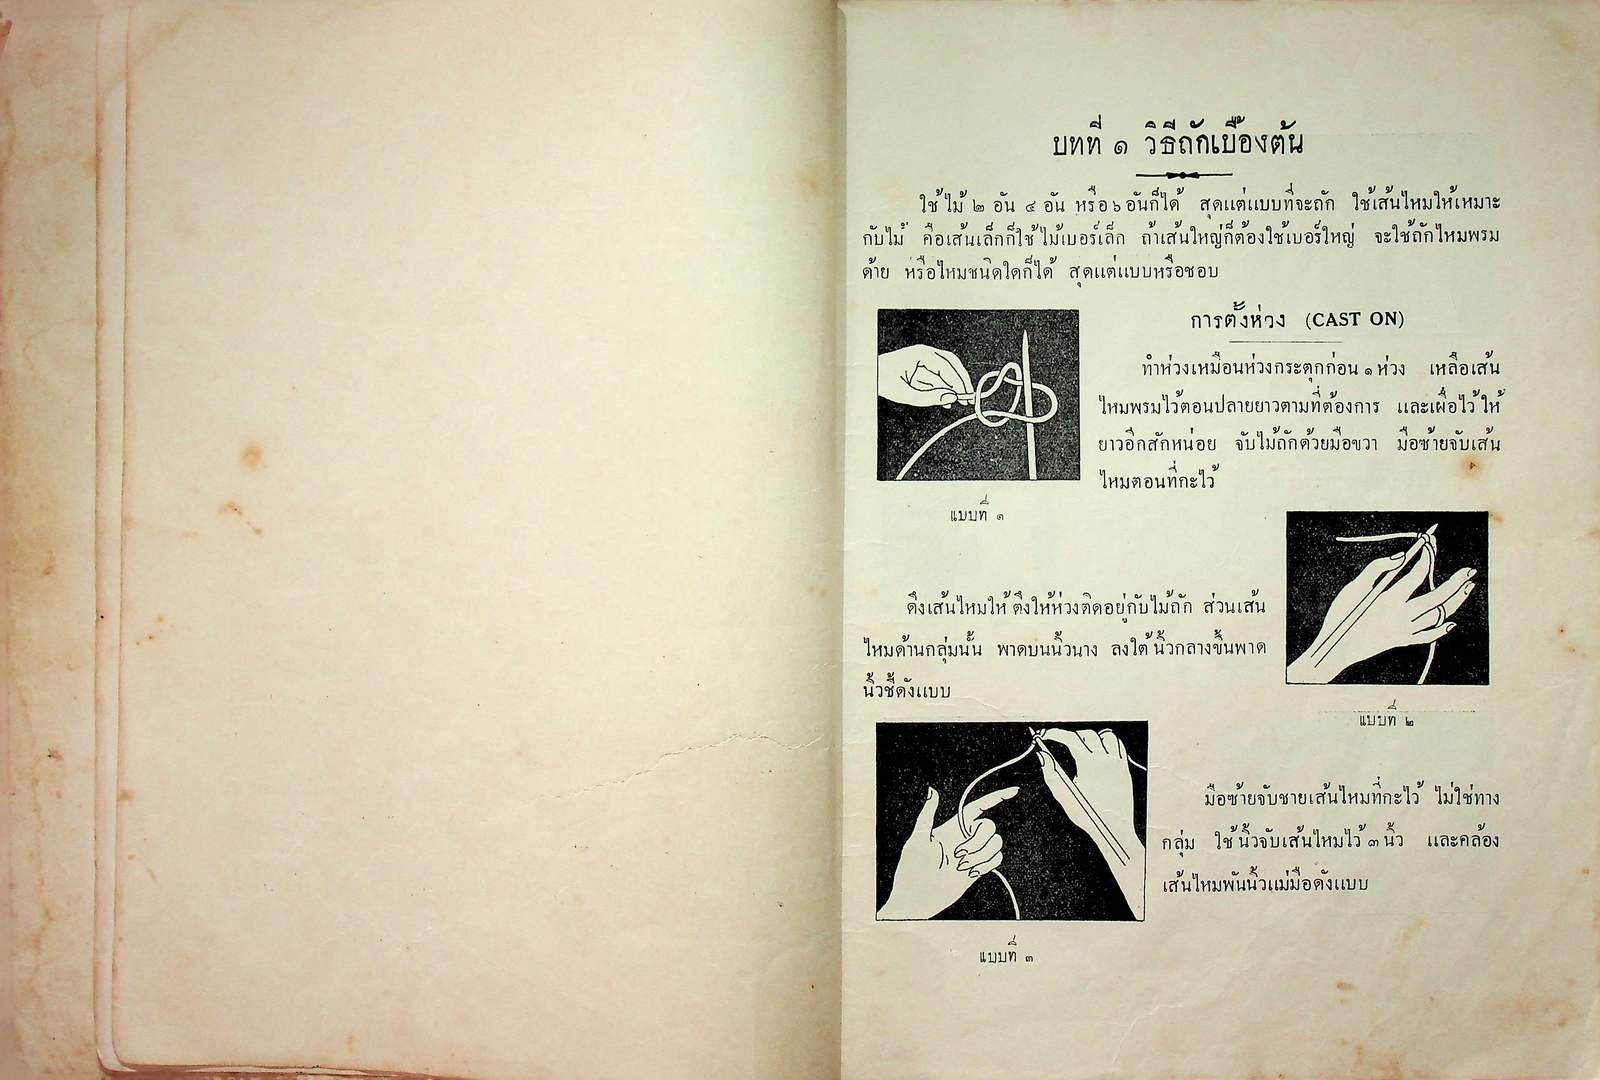 บทที่ ๑ วิธีถักเบื้องต้น
ใช้ไม้ ๒ อัน ๔ อัน หรือ ๖ อันก็ได้ สุดแต่แบบที่จะถัก ใช้เส้นไหมให้เหมาะ
กับไม้ คือเส้นเล็กก็ใช้ไม้เบอร์เล็ก ถ้าเส้นใหญ่ก็ต้องใช้เบอร์ใหญ่ จะใช้ถักไหมพรม
ด้าย หรือไหมชนิดใดก็ได้ สุดแต่แบบหรือชอบ
การตั้งห่วง (CAST ON)
ทำห่วงเหมือนห่วงกระตุกก่อน ๑ ห่วง เหลือเส้น
ไหมพรมไว้ตอนปลายยาวตามที่ต้องการ และเผื่อไว้ให้
ยาวอีกสักหน่อย จับไม้ถักด้วยมือขวา มือซ้ายจับเส้น
ไหมตอนที่กะไว้
แบบที่ ๑
ดึงเส้นไหมให้ตึงให้ห่วงติดอยู่กับไม้ถัก ส่วนเส้น
ไหมด้านกลุ่มนั้น พาดบนนิ้วนาง ลงใต้นิ้วกลางขึ้นพาด
นิ้วชี้ดังแบบ
แบบที่ ๒
มือซ้ายจับชายเส้นไหมที่กะไว้ ไม่ใช่ทาง
กลุ่ม ใช้นิ้วจับเส้นไหมไว้ ๓ นิ้ว และคล้อง
เส้นไหมพันนิ้วแม่มือดังแบบ
แบบที่ ๓